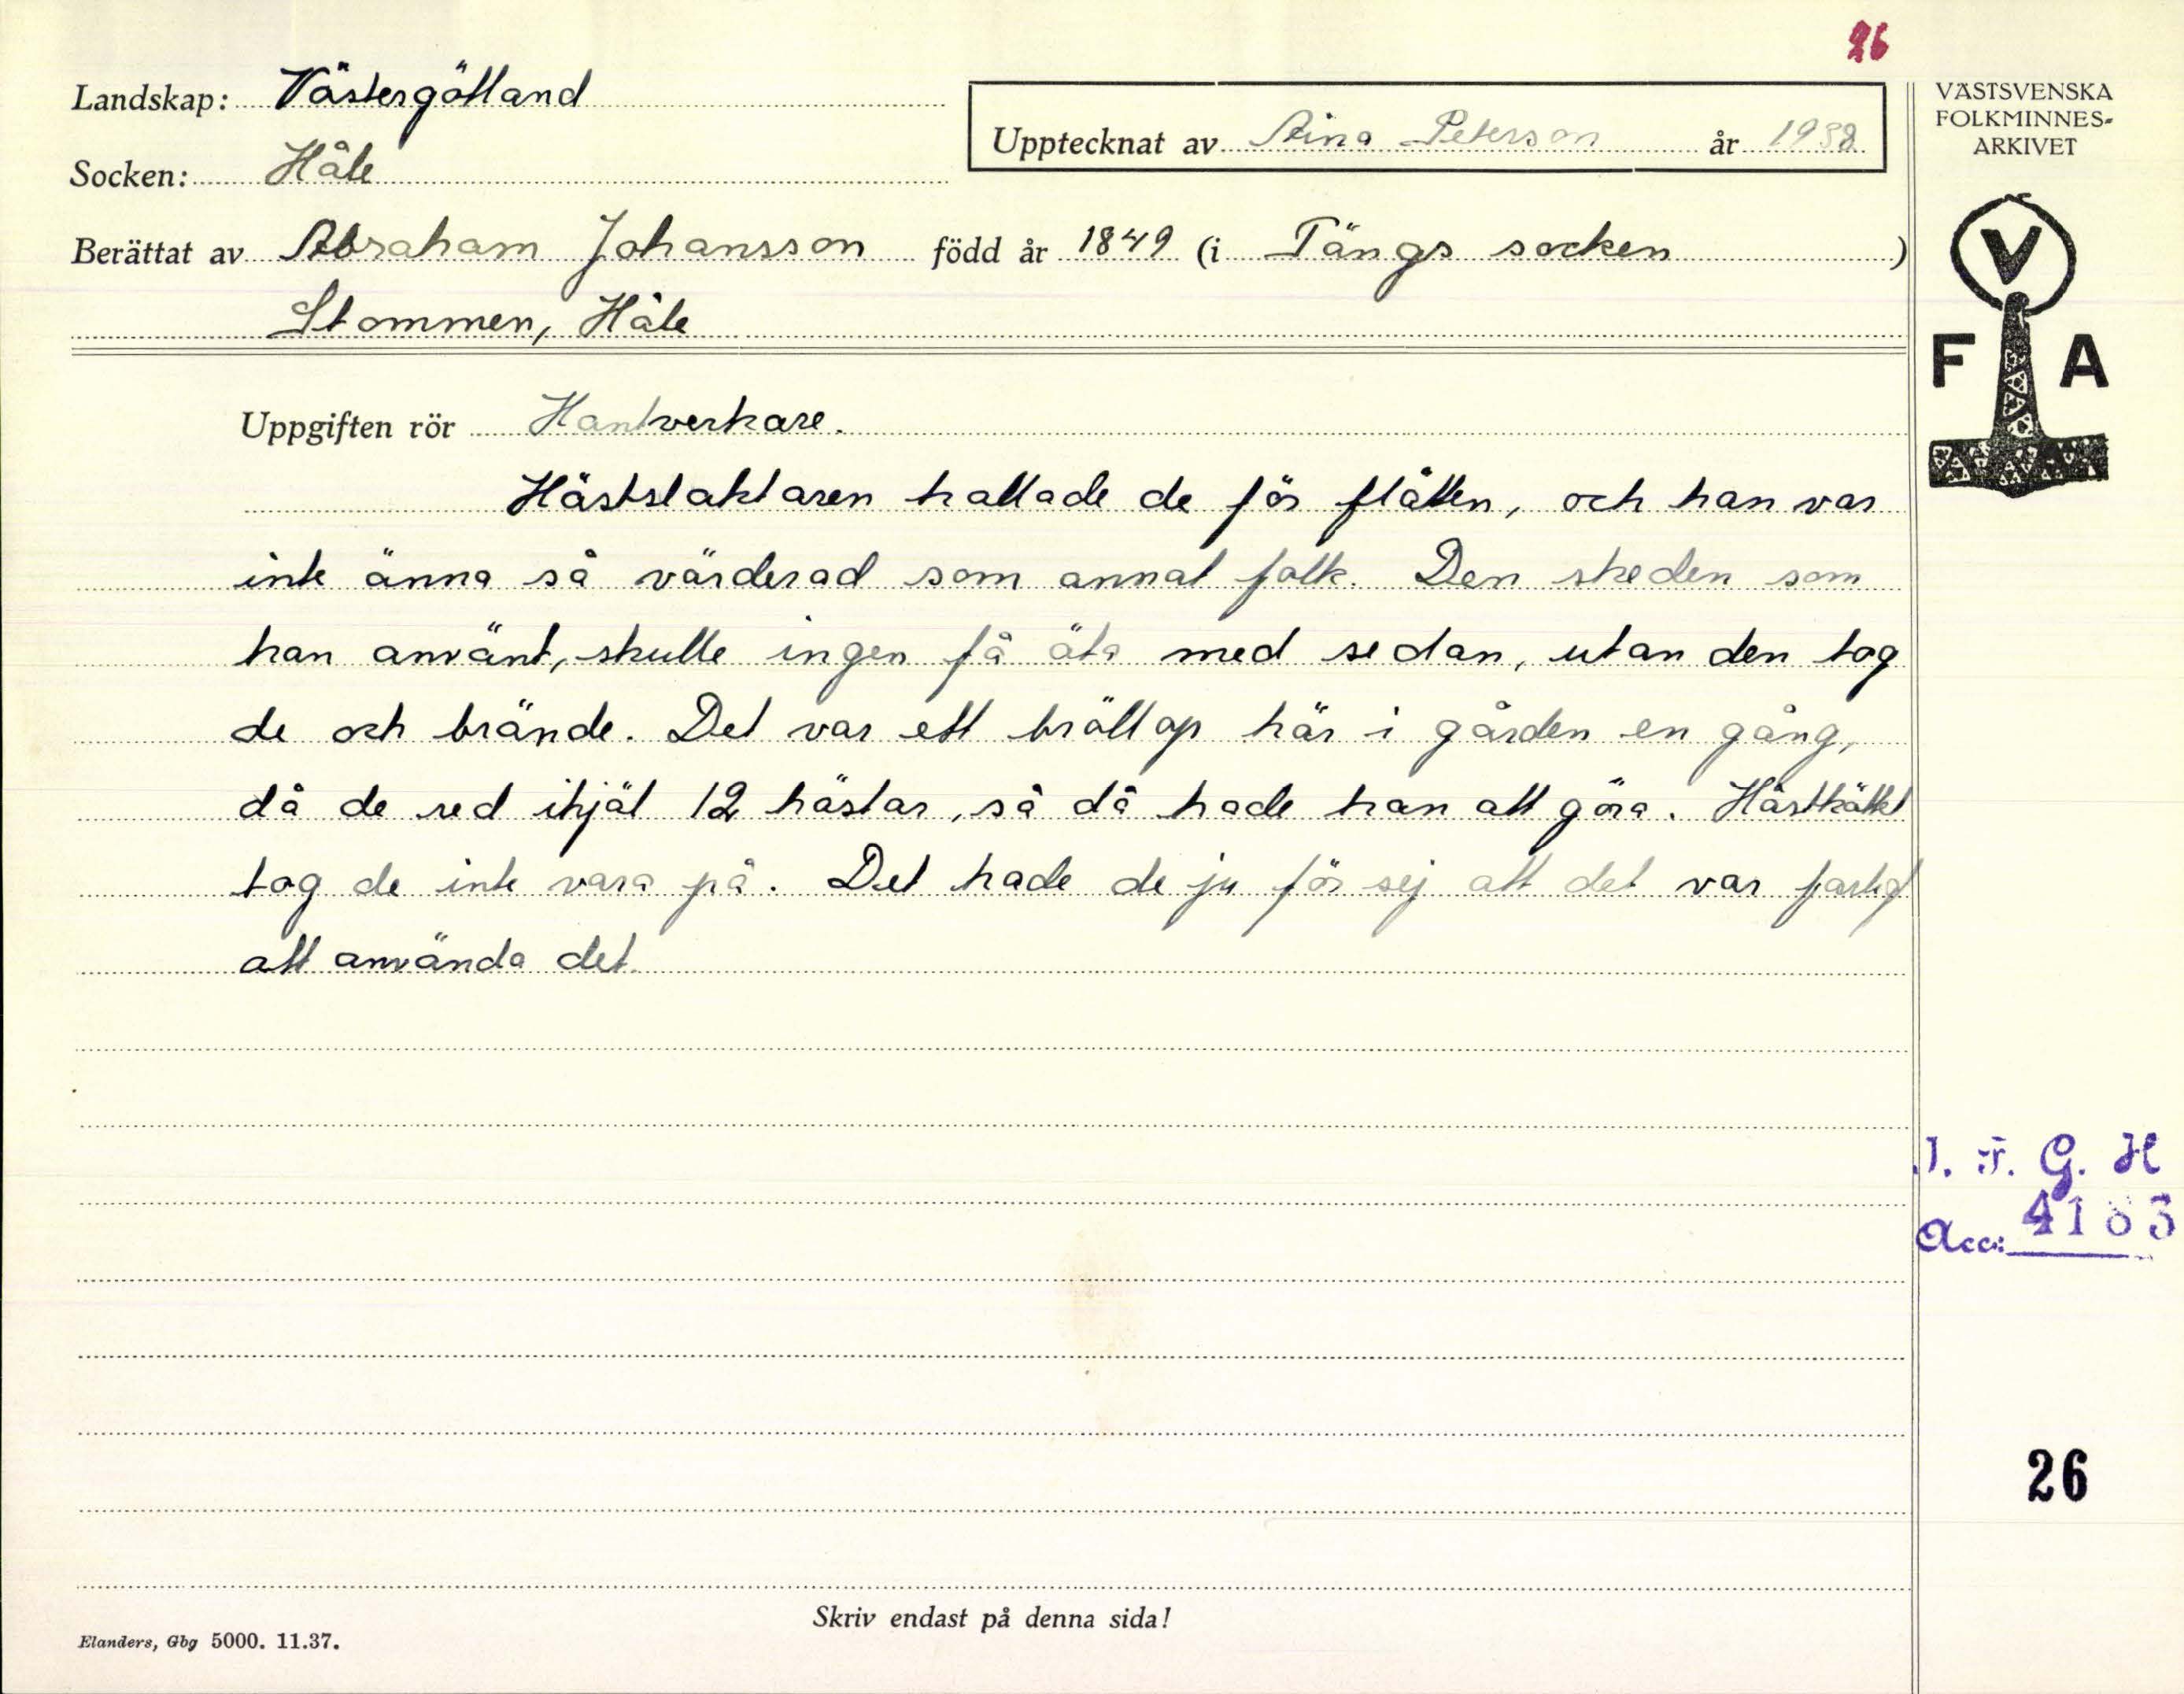 26
Landskap: Västergötland
Upptecknat av Stina Peterson år 1938
VÄSTSVENSKA
FOLKMINNES-
ARKIVET
Socken: Håle
Berättat av Abraham Johansson född år 1849 (i Tängs socken)
Stommen, Håle
V
F A
Uppgiften rör Hantverkare.
Hästslaktaren kallade de för flåtten, och han var
inte änna så värderad som annat folk. Den skeden som
han använt, skulle ingen få äta med sedan, utan den tog
de och brände. Det var ett bröllop här i gården en gång,
då de red ihjäl 12 hästar, så då hade han att göra. Hästköttet
tog de inte vara på. Det hade de ju för sej att det var farligt
att använda det.
I. F. G. H
Acc: 4183
26
Skriv endast på denna sida!
Elanders, Gbg 5000. 11.37.